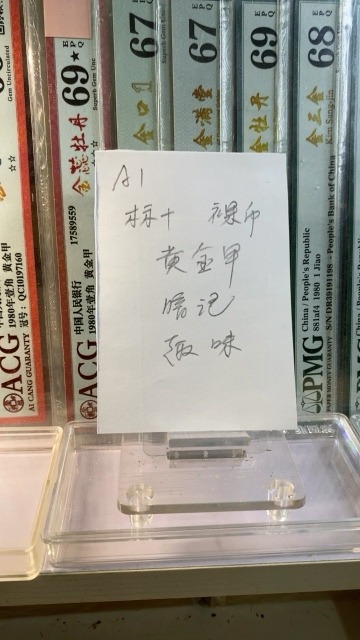 AI
标十 裸币
黄金甲
暗记
趣味
Gem Uncirculated
☆☆
1980年壹角 黄金甲
冠号：QC10197160
ACG
AI CANG GUARANTY
69★ EPQ
Superb Gem Unc
金燕牡丹
☆☆
17589559
中国人民银行
1980年壹角
ACG
67 EPQ
67 EPQ
金满堂
69 EPQ
金牡丹
68 EPQ
Kim Sang-jin
China / People's Republic
881af4 1980 1 Jiao
S/N DR39191198 - People's Bank of China
PMG
PAPER MONEY GUARANTY